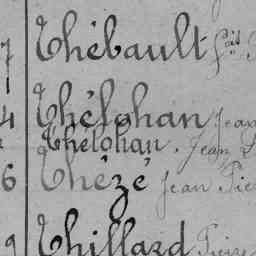 7 Thébault fois
4 Thélohan Jean
Thelohan. Jean
6 Thézé Jean Pie
9 Thillard Pierre